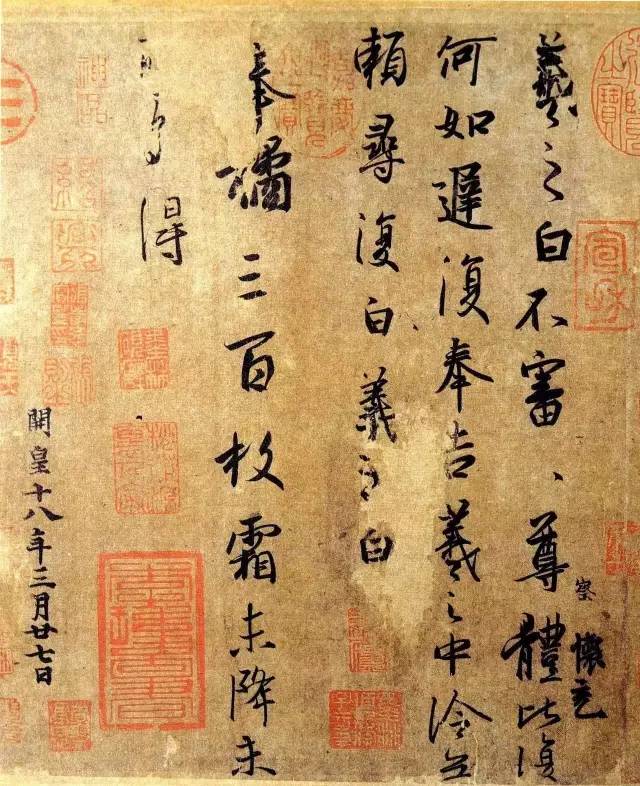 羲之白不審、尊體比復
察 懷充
何如遲復奉告羲之中冷無
賴尋復白羲之白
奉橘三百枚霜未降未
可多得
開皇十八年三月廿七日
神品
宣和